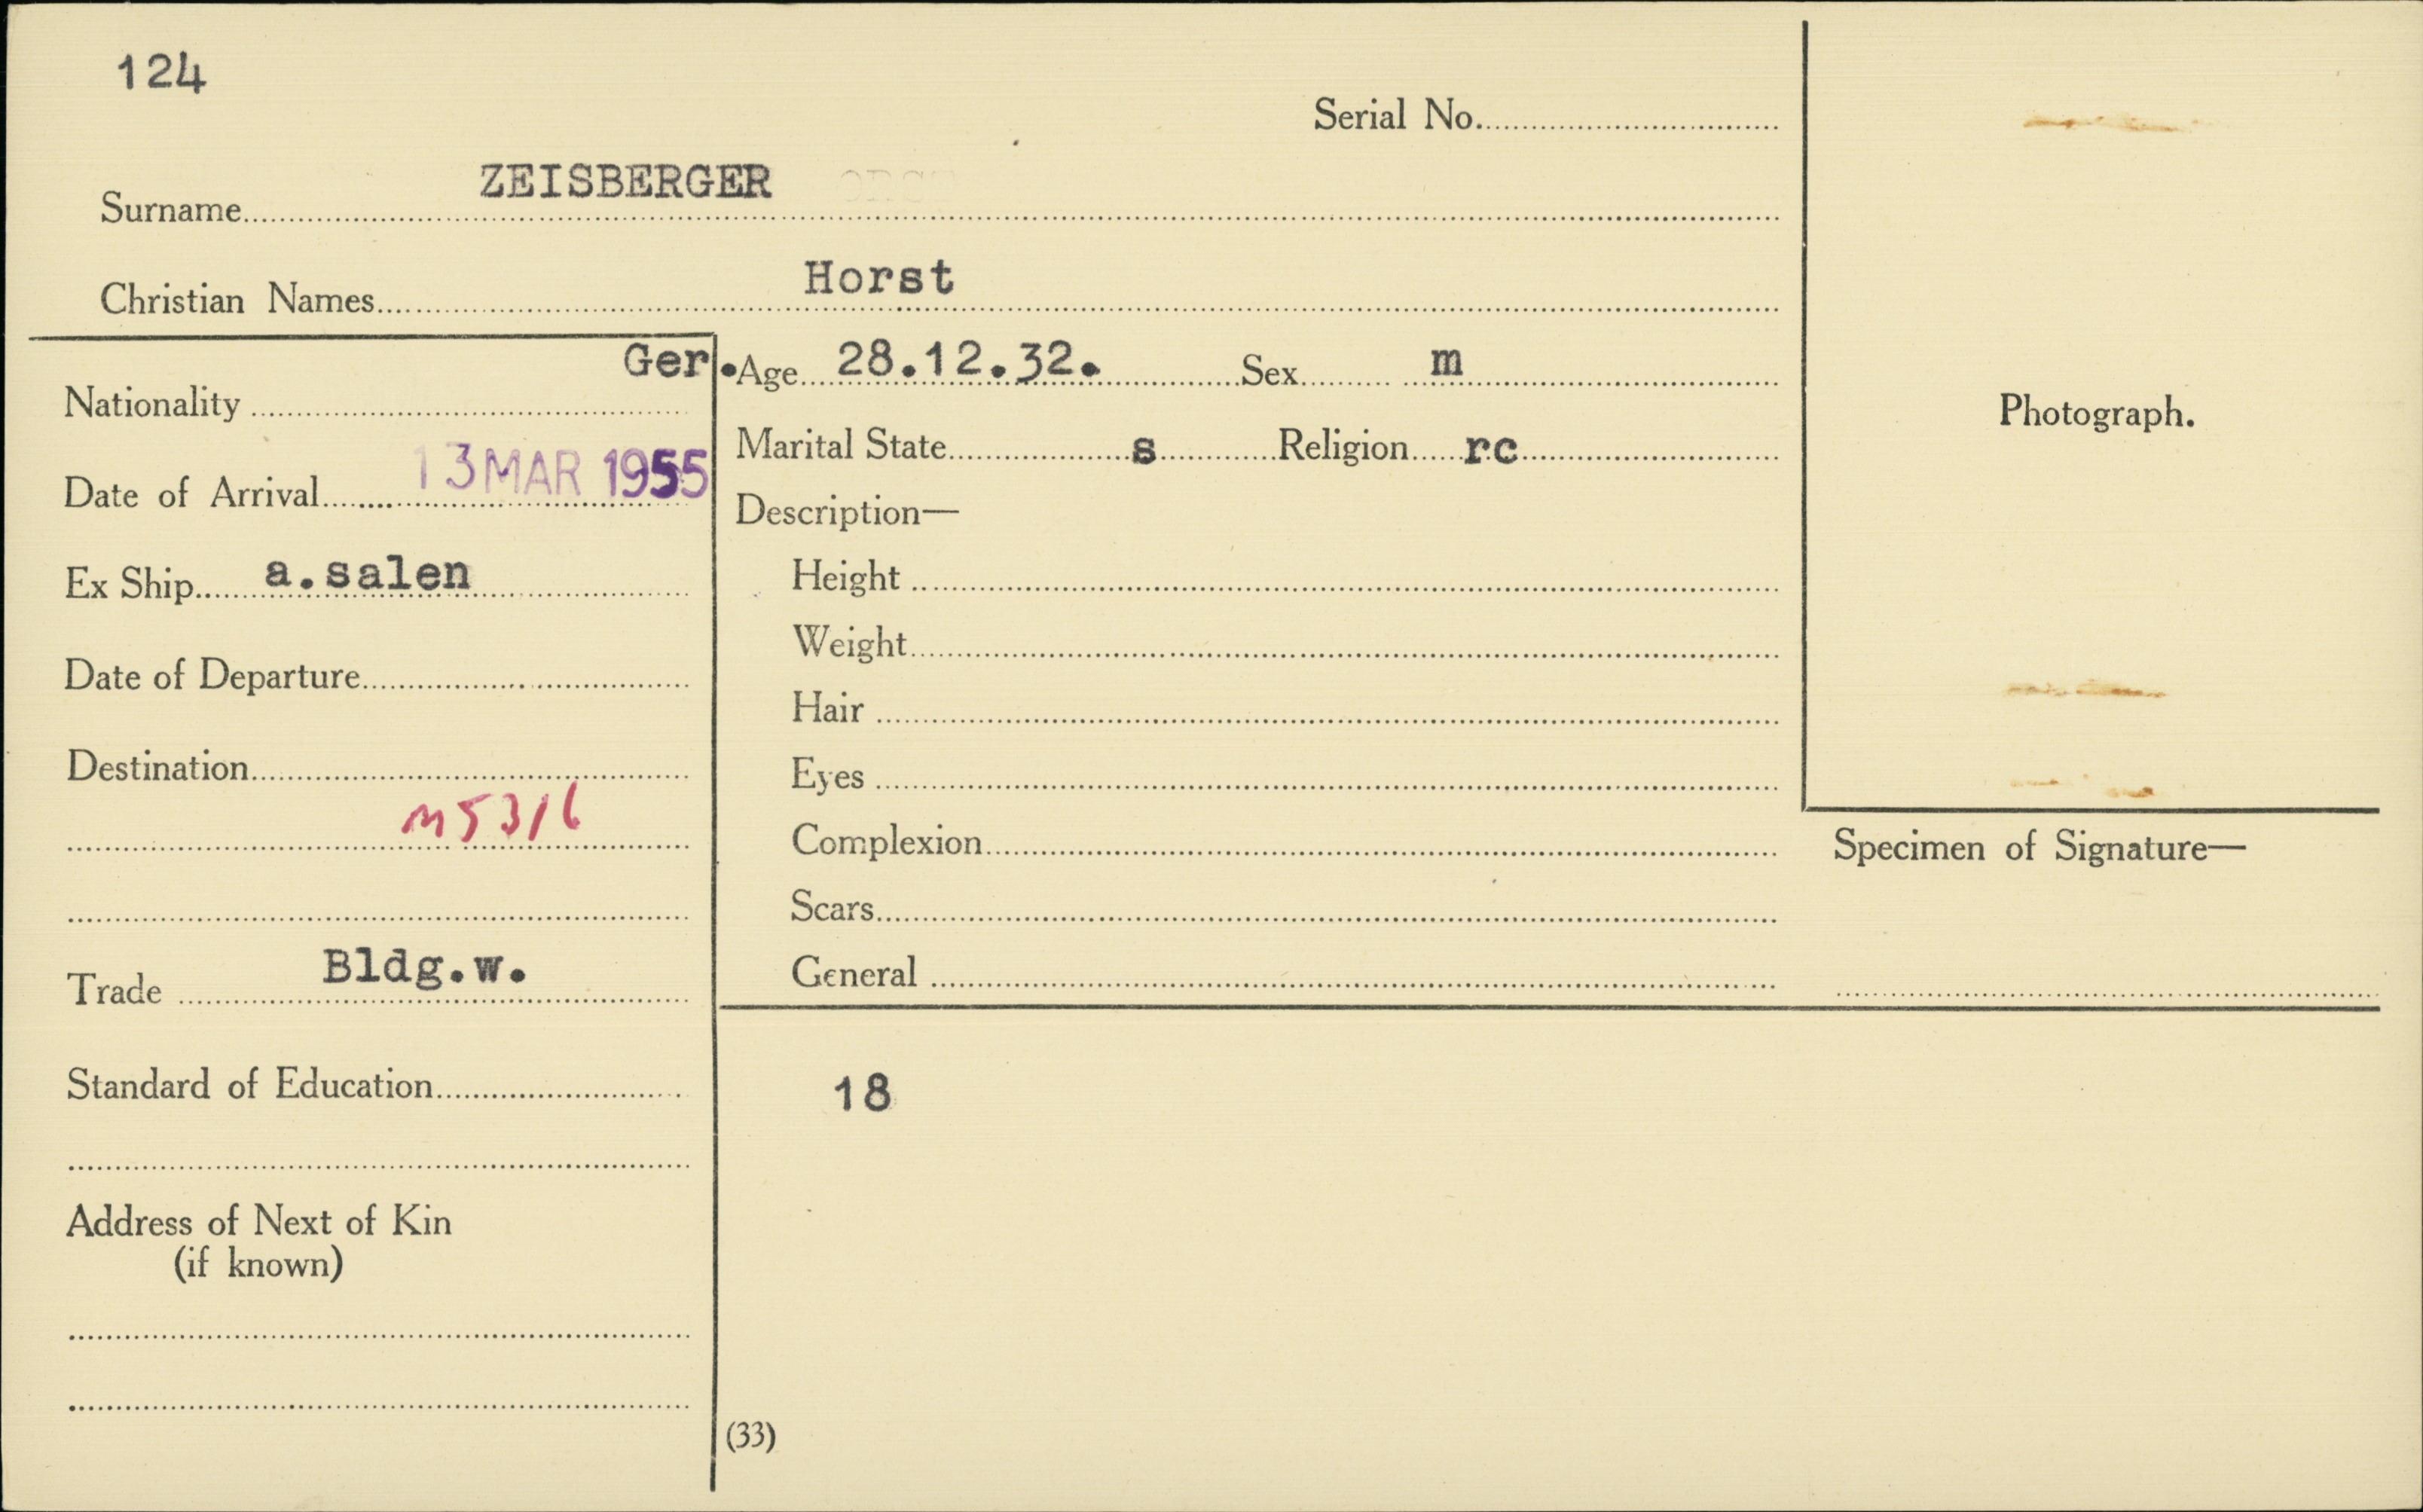 124
Serial No.
Surname ZEISBERGER
Christian Names Horst
Nationality Ger.
Age 28.12.32. Sex m
Marital State s Religion rc
Date of Arrival 13 MAR 1955
Description—
Ex Ship a.salen
Height
Weight
Date of Departure
Hair
Destination
Eyes
M5316
Complexion
Scars
Trade Bldg.w.
General
Photograph.
Specimen of Signature—
Standard of Education
18
Address of Next of Kin
(if known)
(33)